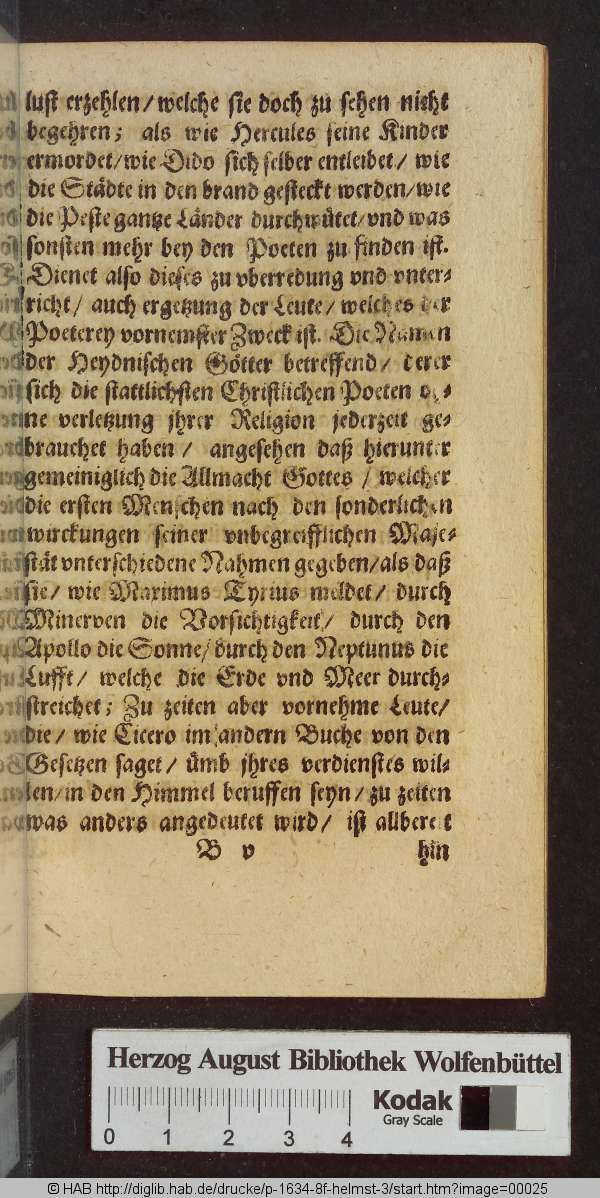 lust erzehlen/welche sie doch zu sehen nicht
begehren; als wie Hercules seine Kinder
ermordet/wie Dido sich selber entleibet/ wie
die Städte in den brand gesteckt werden/wie
die Peste gantze Länder durchwütet/vnd was
sonsten mehr bey den Poeten zu finden ist.
Dienet also dieses zu vberredung vnd vnter-
richt/ auch ergetzung der Leute/ welches der
Poeterey vornemster Zweck ist. Die Namen
der Heydnischen Götter betreffend/ derer
sich die stattlichsten Christlichen Poeten oh-
ne verletzung jhrer Religion jederzeit ge-
brauchet haben/ angesehen daß hierunter
gemeiniglich die Allmacht Gottes / welcher
die ersten Menschen nach den sonderlichen
wirckungen seiner vnbegreifflichen Maje-
stät vnterschiedene Nahmen gegeben/als daß
sie/ wie Maximus Tyrius meldet/ durch
Minerven die Vorsichtigkeit/ durch den
Apollo die Sonne/durch den Neptunus die
Lufft/ welche die Erde vnd Meer durch-
streichet; Zu zeiten aber vornehme Leute/
die/ wie Cicero im andern Buche von den
Gesetzen saget/ ümb jhres verdienstes wil-
len/in den Himmel beruffen seyn/ zu zeiten
was anders angedeutet wird/ ist allbereit
B v hin
Herzog August Bibliothek Wolfenbüttel
Kodak
Gray Scale
0 1 2 3 4
© HAB http://diglib.hab.de/drucke/p-1634-8f-helmst-3/start.htm?image=00025